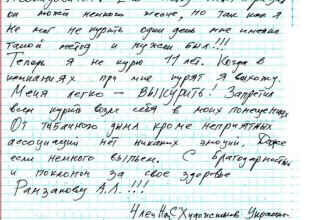 он может немного жестче, но так как я
не мог не курить один день мне именно
такой метод и нужен был!!!
Теперь я не курю 11 лет. Когда в
компаниях при мне курят я выхожу.
Меня легко – ВЫКУРИТЬ! Запретил
всем курить возле себя в моих помещениях
От табачного дыма кроме неприятных
ассоциаций нет никаких эмоций, Даже
если немного выпьем. С благодарностью
и поклоном за свое здоровье
Рамзанову А.Л. !!!
Член НаСХудожников Украины